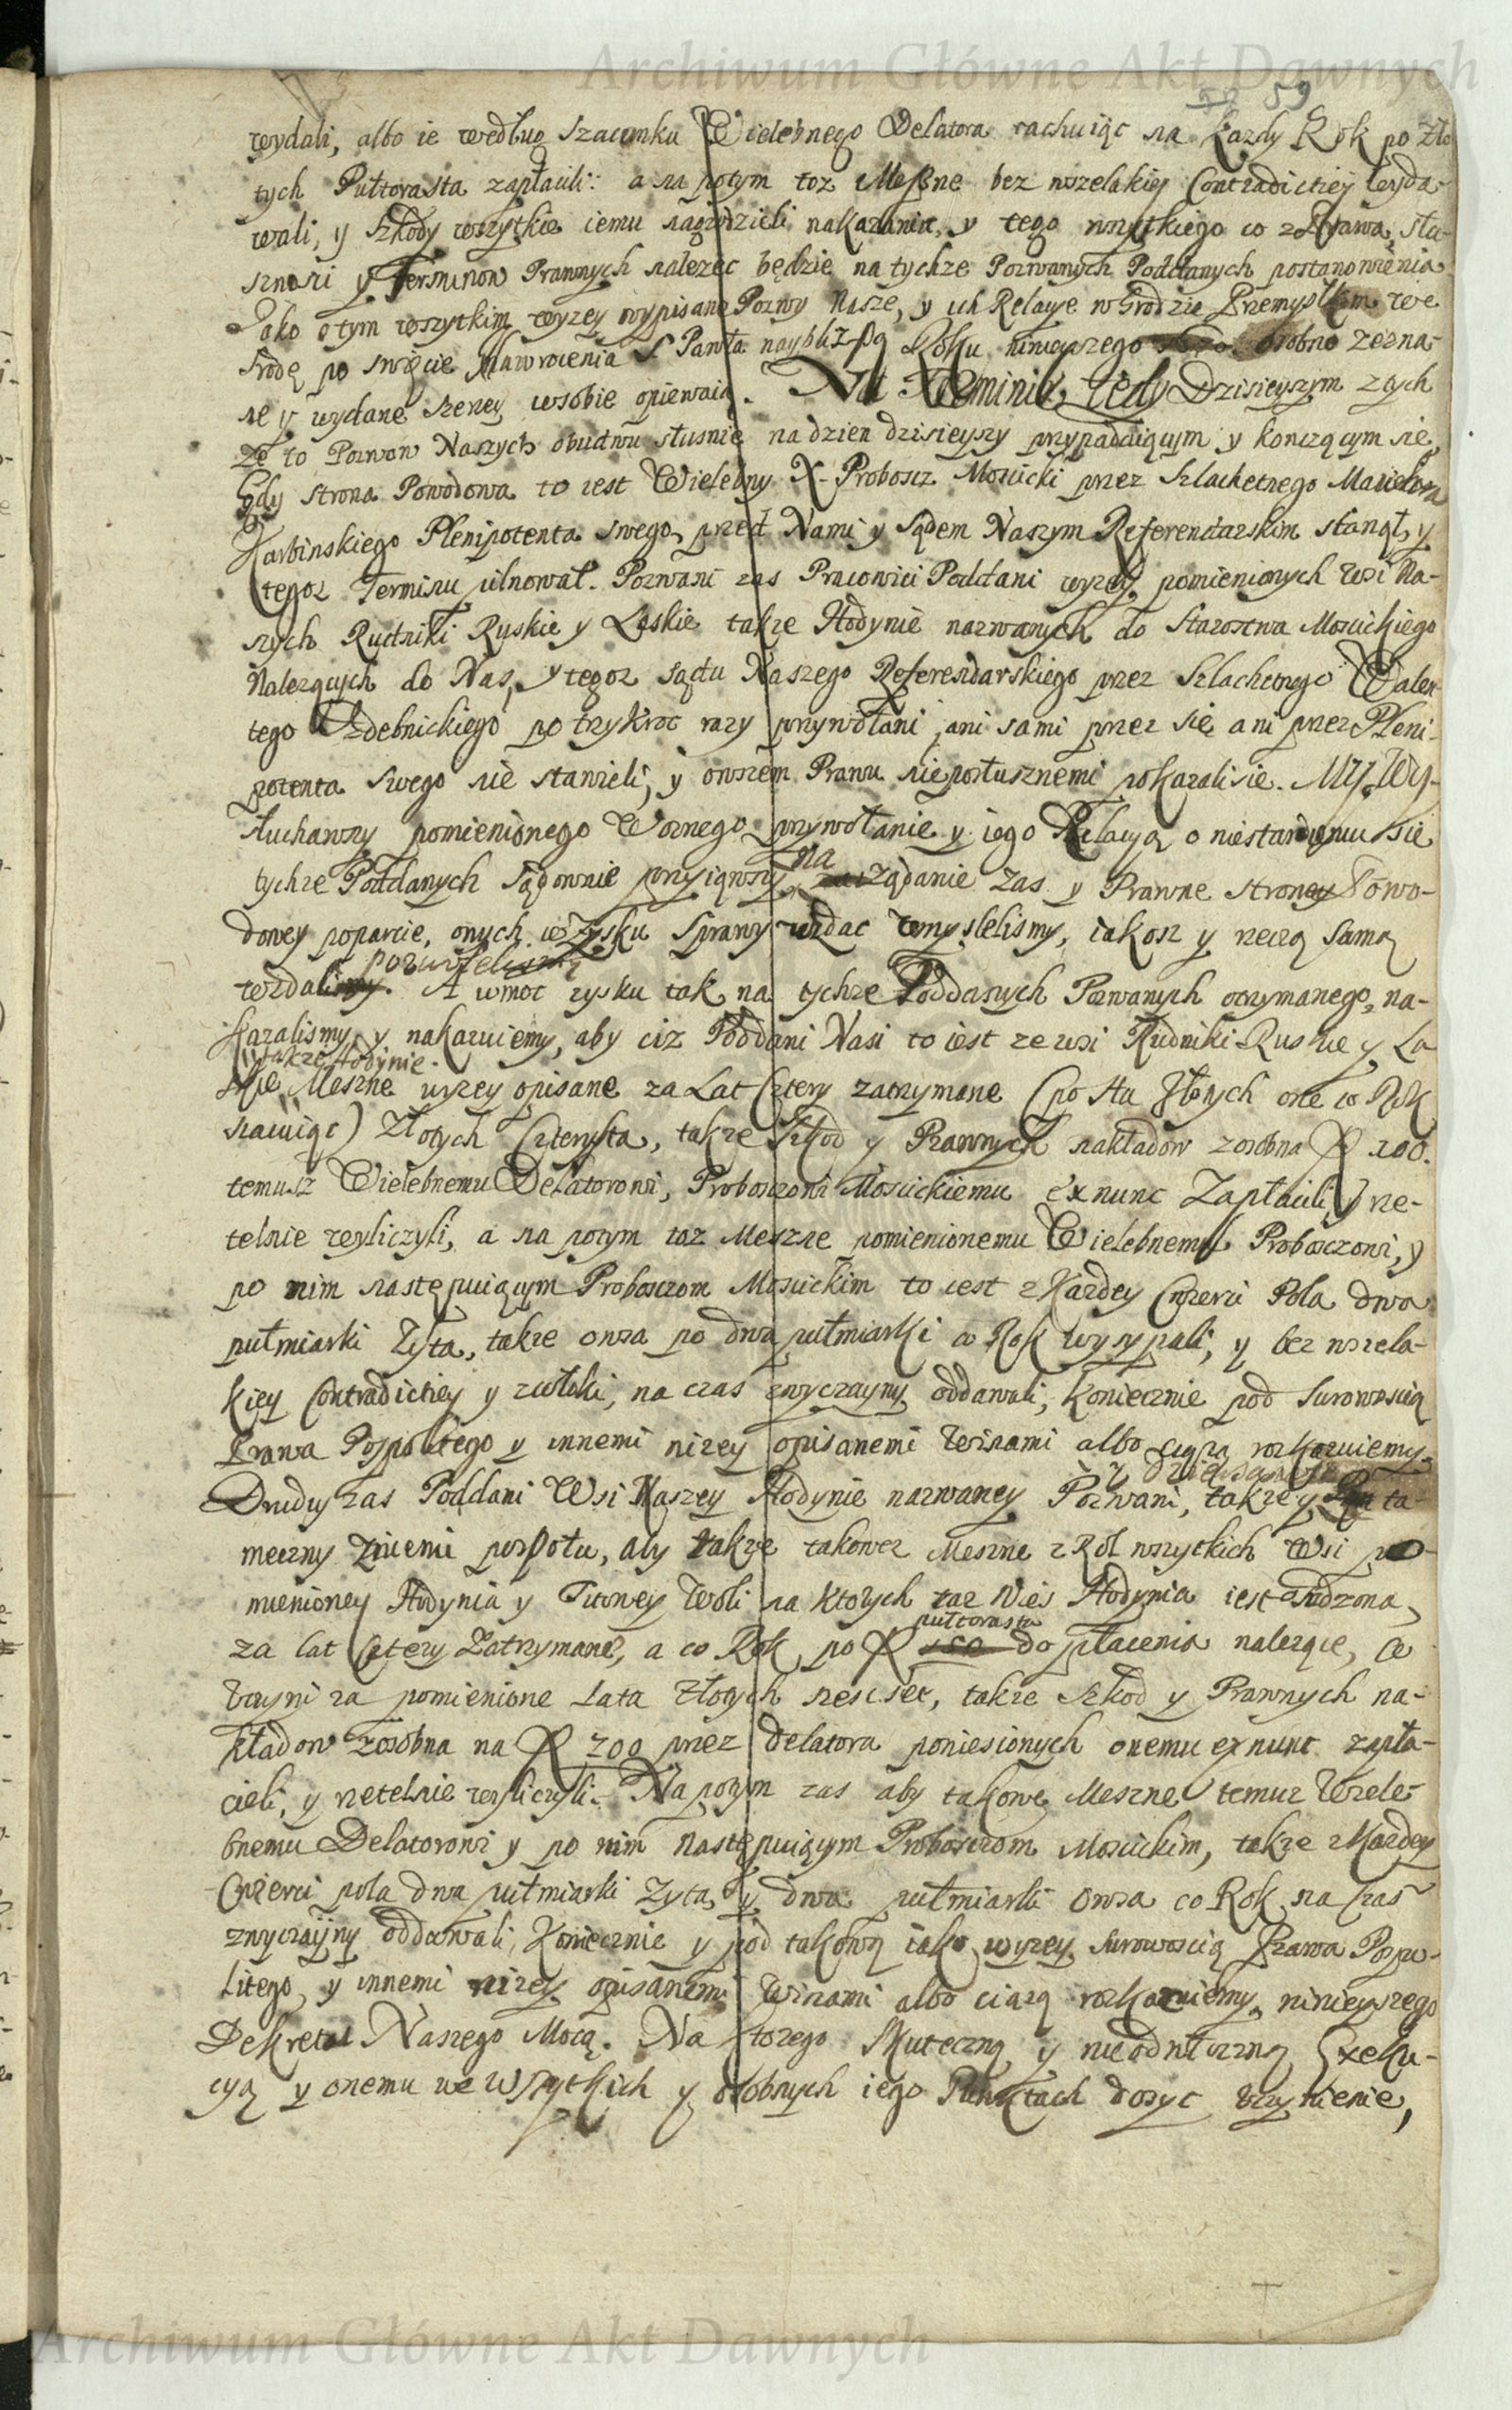 Archiwum Główne Akt Dawnych
59 59
wydali, albo ie według szacunku Wielebnego Delatora rachuiąc na każdy Rok po zło
tych Pułtorasta zapłacili: a na potym toz Meszne bez wszelakiey Contradictiey wyda-
wali, y szkody wszytkie iemu nagrodzili nakazania, y tego wszytkiego co z Prawa, słu-
sznosci y Terminow Prawnych nalezec będzie na tychze Pozwanych Poddanych postanowienia
Jako o tym wszytkim wyzey wypisane Pozwy Nasze, y ich Relacye w Grodzie Przemyslkim we
srodę po swięcie Nawrocenia S Pawła naybliz szą Roku ninieyszego osobno zezna-
ne y wydane szerzey w sobie opiewaią. Na Terminie tedy Dzisieyszym z tych
ze to Pozwow Naszych obudwu słusnie na dzien dzisieyszy przypadaiącym y konczącym się,
Gdy strona Powodowa to iest Wielebny X. Proboscz Moscicki przez Szlachetnego Macieia
Karbinskiego Plenipotenta swego, przed Nami y Sądem Naszym Referendarskim stanął, y
tegoz Terminu pilnował. Pozwani zas Pracowici Poddani wyzey pomienionych wsi Na-
szych Rudniki Ruskie y Laskie takze Hodynie nazwanych do Starostwa Moscickiego
Nalezących do Nas, y tegoz sądu Naszego Referendarskiego przez Szlachetnego Walen
tego Zdebnickiego po trzykroc razy przywołani, ani sami przez się ani przez Pleni-
potenta swego nie staneli, y owszem Prawu nieposłusznemi pokazali sie. My Wy-
słuchawszy pomienionego Woznego przywołanie y iego Relacyą o niestaniu się
tychze Poddanych sądownie przyiąwszy, na ządanie zas y Prawne strony Powo-
dowey poparcie, onych w zysku sprawy wzdac umyslelismy, iakosz y rzeczą samą
pozwolelismy
wzdalismy. A w moc zysku tak na tychze Poddanych Pozwanych otrzymanego, na-
kazalismy y nakazuiemy, aby ciz Poddani Nasi to iest ze wsi Rudniki Ruskie y La
takze Hodynie.
skie Meszne wyzey opisane za Lat Cztery zatrzymane (po stu złotych one co Rok
rachuiąc) Złotych Czterysta, takze szkod y Prawnych nakładow zosobna fl 100.
temusz Wielebnemu Delatorowi, Proboszczowi Moscickiemu ex nunc Zapłacili y rze-
telnie wyliczyli, a na potym toz Meszne pomienionemu Wielebnemu Proboszczowi, y
po nim następuiącym Proboszczom Moscickim to iest z Kazdey Cwierci Pola dwa
pułmiarki Zyta, takze owsa po dwa pułmiarki co Rok wysypali, y bez wszela-
kiey Contradictiey y zwłoki, na czas zwyczayny oddawali, koniecznie pod surowoscią
Prawa Pospolitego y innemi nizey opisanemi Winami albo ciązą rozkazuiemy.
Drudzy zas Poddani Wsi Naszey Hodynie nazwaney Pozwani, takze y ta-
meczny z niemi pospołu, aby takze takowez Meszne z Rol wszytkich Wsi po-
mienioney Hodynia y Woli na ktorych taz Wieś Hodynia iest osadzona,
pułtorasta
za lat Cztery Zatrzymane, a co Rok po fl 150 do płacenia nalezące, co
uczyni za pomienione Lata złotych szescset, takze szkod y Prawnych na-
kładow zosobna na fl 200 przez delatora poniesionych onemu ex nunc zapła-
cieli, y rzetelnie wyliczyli. Na potym zas aby takowe Meszne temuz Wiele-
bnemu Delatorowi y po nim następuiącym Proboszczom Moscickim, takze z Kazdey
Cwierci pola dwa pułmiarki Zyta, y dwa pułmiarki Owsa co Rok na Czas
zwyczayny oddawali, Koniecznie y pod takową iako wyzey surowoscią Prawa Pospo-
litego, y innemi nizey opisanemi Winami albo ciązą rozkazuiemy, ninieyszego
Dekretu Naszego Mocą. Na ktorego skuteczną y nieodwłoczną Exeku-
cyą y onemu we Wszytkich y osobnych iego Punktach dosyc uczynienie,
Archiwum Główne Akt Dawnych